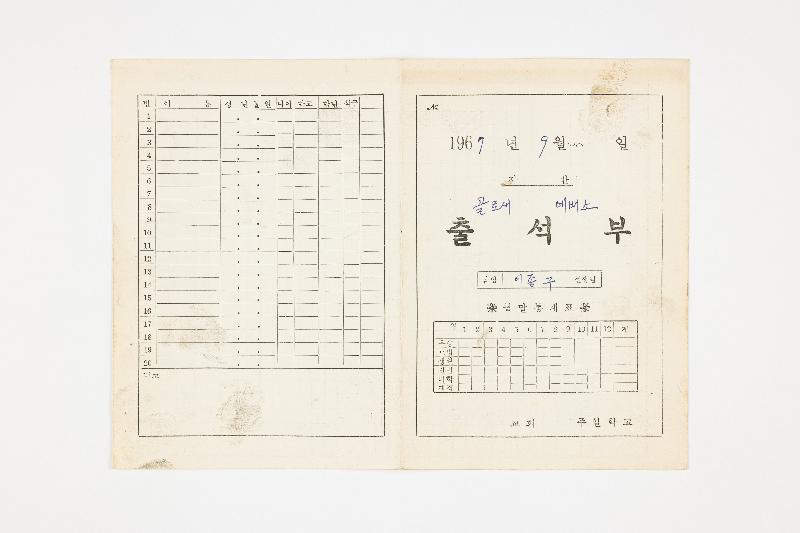 번 이 름 생 년 월 일 나이 학교 학년
1
2
3
4
5
6
7
8
9
10
11
12
13
14
15
16
17
18
19
20
비고
№
1967 년 9월 일
반
골로새 에베소
출 석 부
담임 선생님
월말통계표
월 1 2 3 4 5 6 7 8 9 10 11 12 계
교회 주일학교